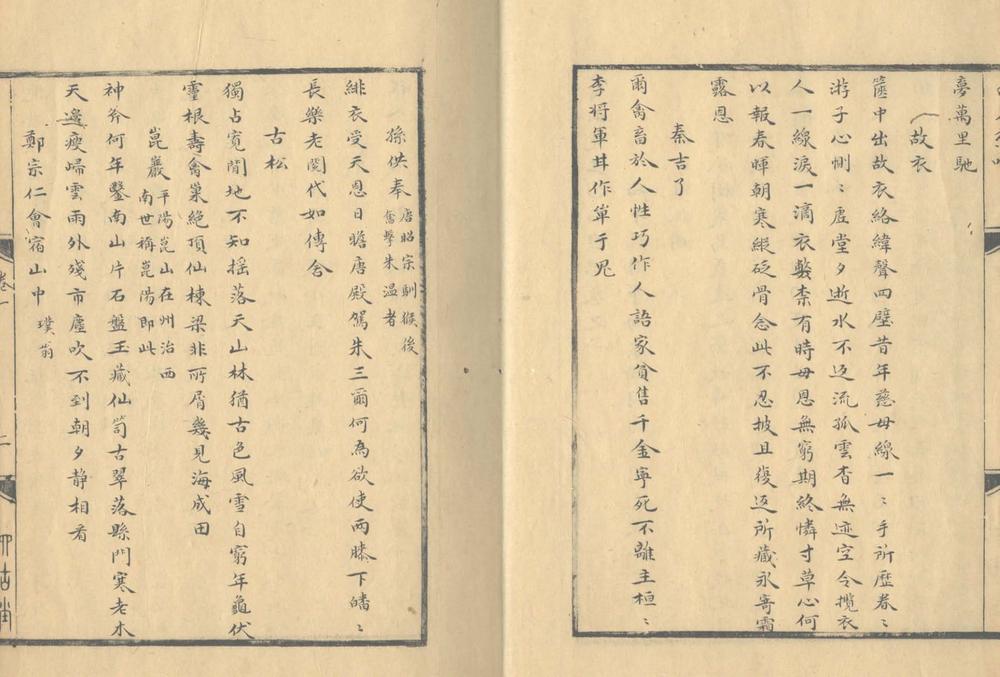 夢萬里馳
故衣
篋中出故衣絡緯聲四壁昔年慈母線一〻手所歷眷〻
游子心惻〻虛堂夕逝水不返流孤雲杳無迹空令攬衣
人一線淚一滴衣弊柰有時母恩無窮期終憐寸草心何
以報春暉朝寒縱砭骨念此不忍披且復返所藏永寄霜
露恩
秦吉了
爾禽畜於人性巧作人語家貧售千金寧死不離主桓〻
李將軍甘作單于鬼
孫供奉唐昭宗馴猴後奮擊朱温者
緋衣受天恩日瞻唐殿駕朱三爾何為欲使兩膝下皤〻
長樂老閱代如傳舍
古松
獨占寬閒地不知揺落天山林猶古色風雪自窮年龜伏
靈根壽禽巢絶頂仙棟梁非所屑幾見海成田
崑巖平陽崑山在州治西南世稱崑陽即此
神斧何年鑿南山片石盤玉藏仙笥古翠落縣門寒老木
天邉瘦歸雲雨外殘市塵吹不到朝夕静相看
鄭宗仁會宿山中 璞翁
卷一
二